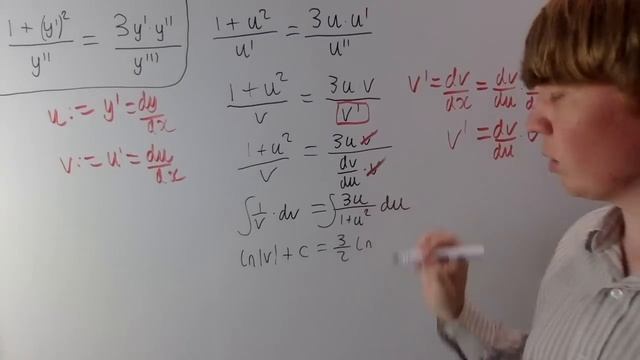 (1 + (y')²)/y'' = (3y'·y'')/y'''
(1 + u²)/u' = (3u·u')/u''
u := y' = dy/dx
v := u' = du/dx
(1 + u²)/v = (3u v)/v'
(1 + u²)/v = (3u v)/(dv/du · v)
∫ 1/v · dv = ∫ 3u/(1+u²) du
ln|v| + c = 3/2 ln
v' = dv/dx = dv/du ·
v' = dv/du · v